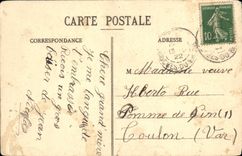 CARTE POSTALE
CORRESPONDANCE
ADRESSE
Chère grand mère
Je me languis de
t'embrasser
Reçois un gros
baiser de Jean
10
Madame veuve
Hiberto Rue
Pomme de Pin (1)
Toulon (Var)